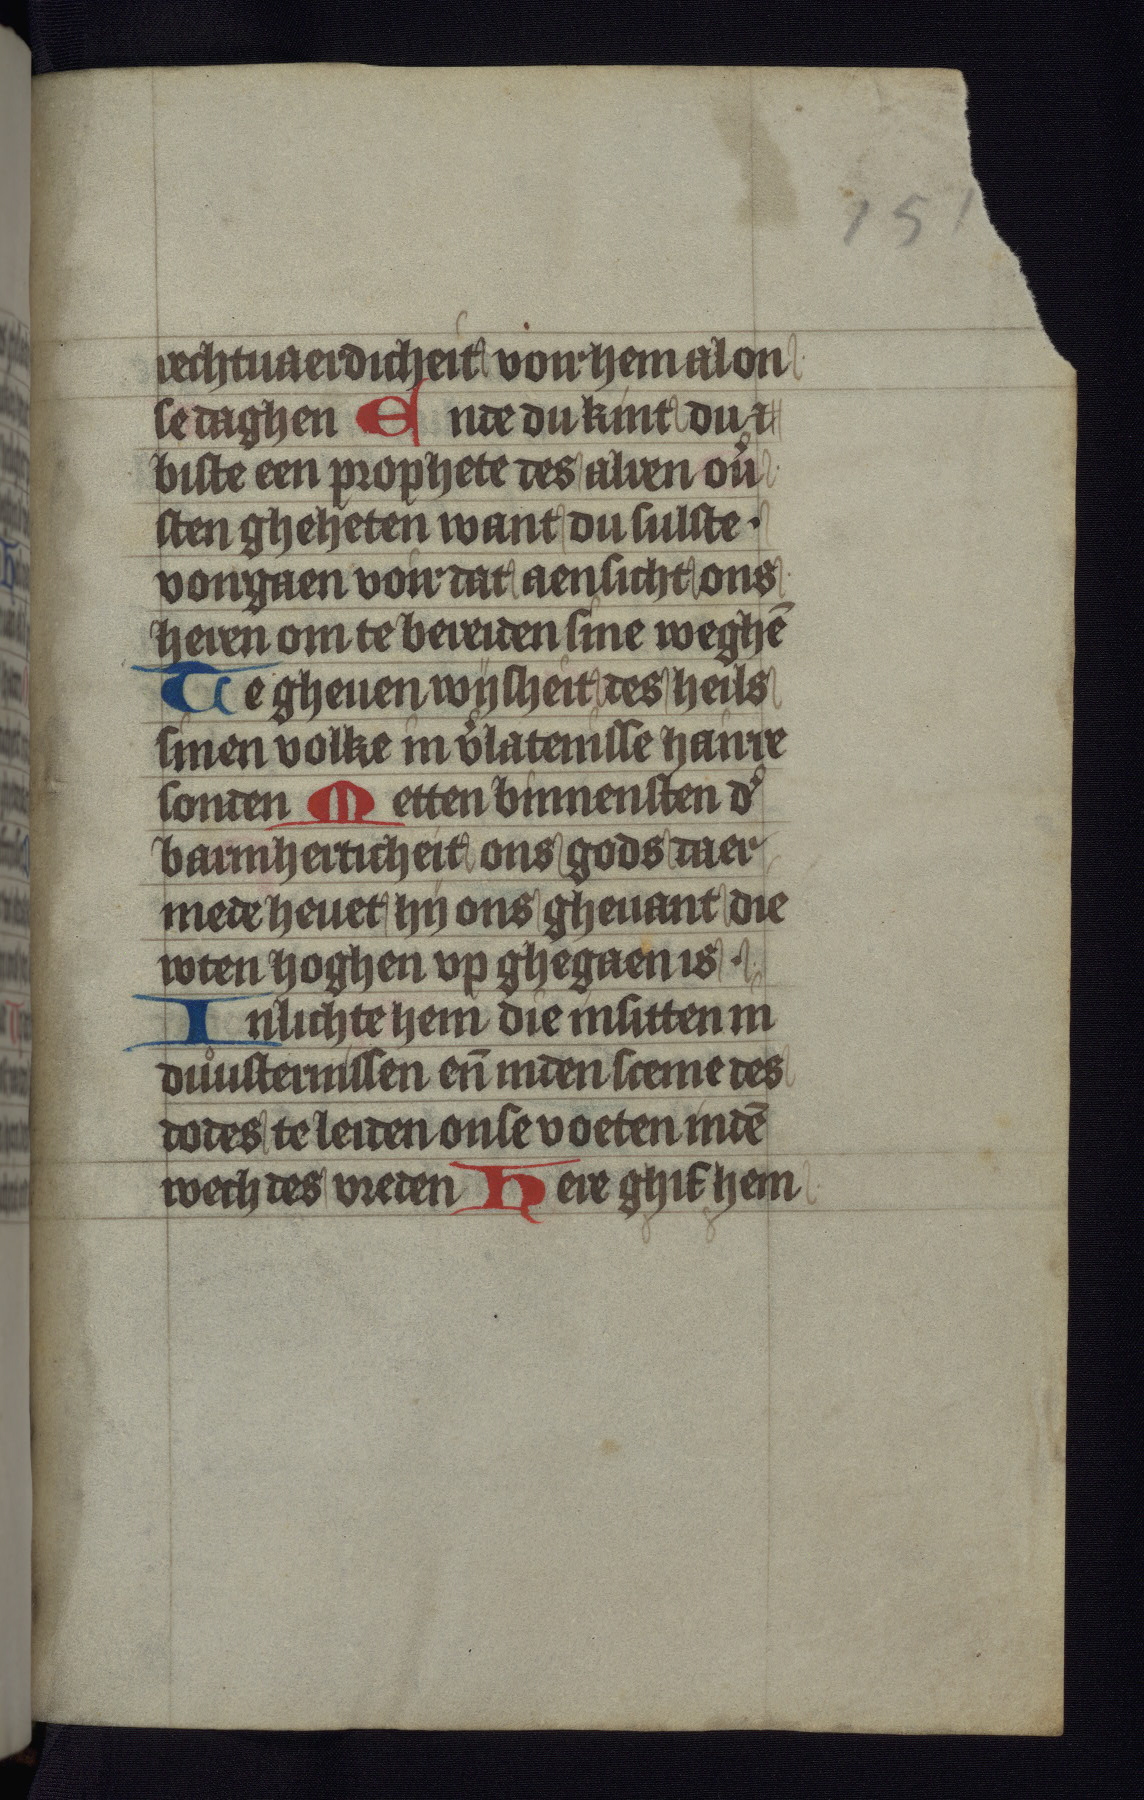 151
rechtuaerdicheit voir hem al on
se daghen Ende du kint du
biste een prophete des alren ou͛
sten gheheten want du sulste·
vongaen voir dat aensicht ons
heren om te bereiden sine weghē
Te gheuen wijsheit des heils
sinen volke in v͛latenisse haure
sonden Metten binnensten d͛
barmherticheit ons gods daer
mede heuet hij ons gheuant die
wten hoghen vp ghegaen is ·
Inlichte hem die insitten in
duusternissen en̄ inden sceme des
dodes te leiden onse voeten indē
wech des vreden Here ghif hem